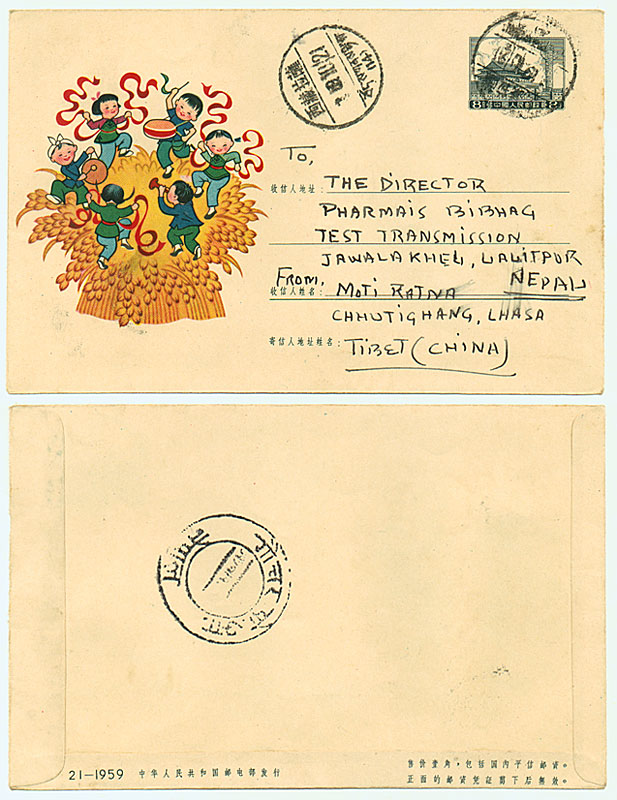 8分 中國人民郵政
To,
收信人地址: THE DIRECTOR
PHARMAIS BIBHAG
TEST TRANSMISSION
JAWALAKHEL, LALITPUR
NEPAL
From,
收信人姓名: MOTI RATNA
CHHUTIGHANG, LHASA
寄信人地址姓名: TIBET (CHINA)
गोचर
21—1959 中华人民共和国邮电部发行
售价壹角,包括国内平信邮资。
正面的邮资凭证剪下后无效。